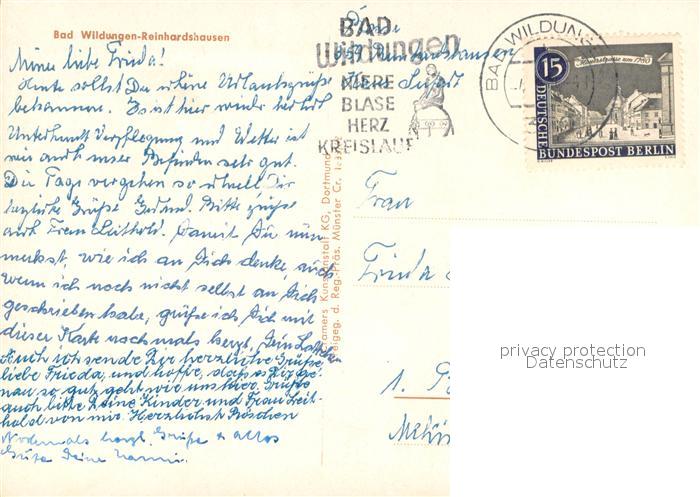 Bad Wildungen-Reinhardshausen
Meine liebe Frieda!
Heute sollst Du schöne Urlaubsgrüße
bekommen. Es ist hier wieder herrlich
Unterkunft Verpflegung und Wetter ist
wie auch unser Befinden sehr gut.
Die Tage vergehen so schnell Dir
herzliche Grüße Bitte grüße
auch Frau Leithold. Damit Du nun
merkst, wie ich an Dich denke, auch
wenn ich noch nicht selbst an Dich
geschrieben habe, grüße ich Dich mit
dieser Karte nochmals herzl. Dein
Auch ich sende Dir herzliche Grüße
liebe Frieda, und hoffe, dass es Dir ge-
nau so gut geht wie uns hier. Grüße
auch bitte Deine Kinder und Frau Leit-
hold von mir. Herzlichst Röschen
Nochmals herzl. Grüße & alles
Gute Deine Hanni.
Cramers Kunstanstalt KG, Dortmund
Freigeg. d. Reg.-Präs. Münster
BAD
Wildungen
NIERE
BLASE
HERZ
KREISLAUF
BAD WILDUNGEN
15
um 1780
DEUTSCHE
BUNDESPOST BERLIN
Frau
Frieda
1.
privacy protection
Datenschutz